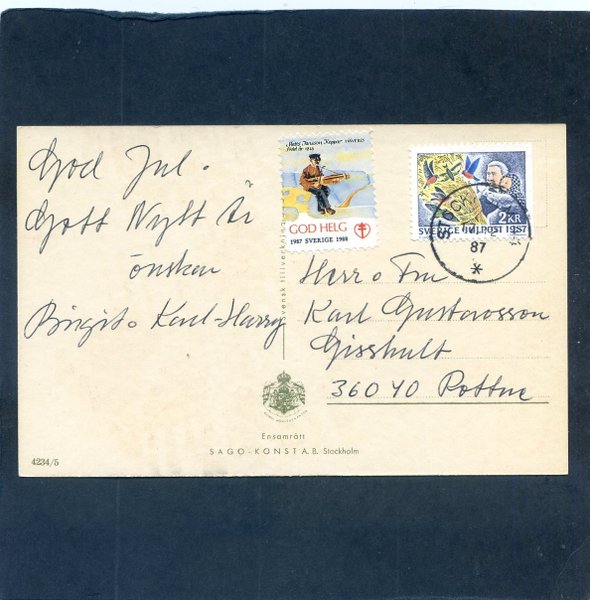 God Jul.
Gott Nytt År
önskar
Birgit o Karl-Harry
GOD HELG
1987 SVERIGE 1988
2 KR
SVERIGE JULPOST 1987
STOCK
87
*
Herr o Fru
Karl Gustavsson
Gisshult
360 40 Rottne
Svensk tillverkning
Ensamrätt
SAGO-KONST A.B. Stockholm
4234/5